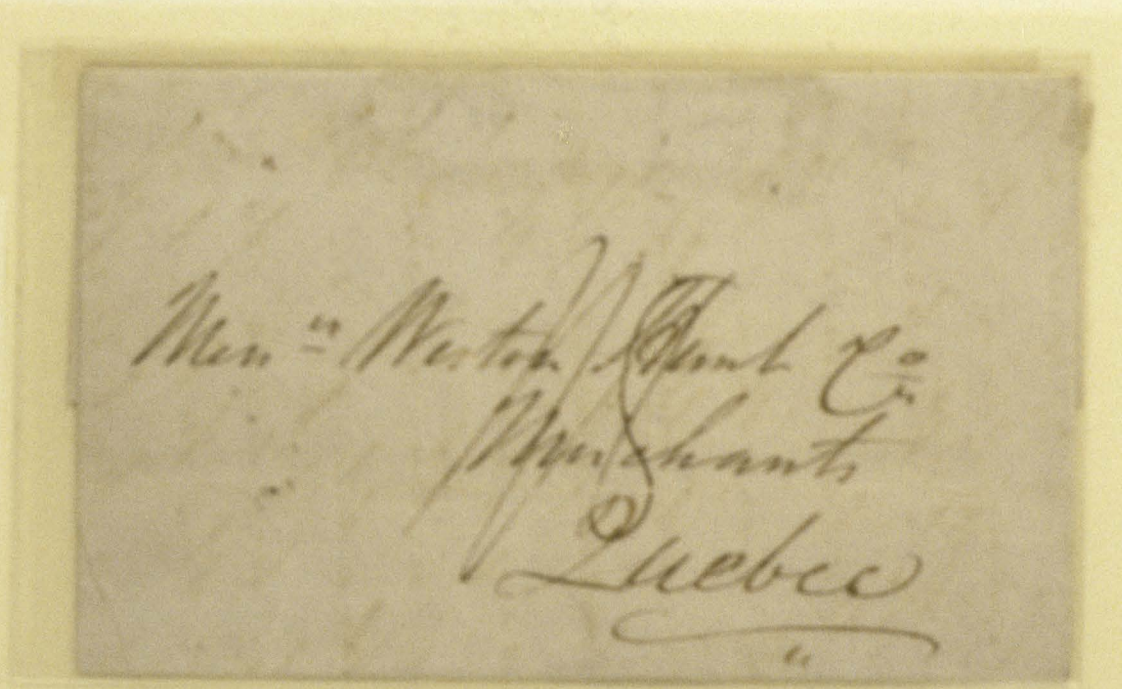 Messrs Weston Hunt & Co
Merchants
Quebec